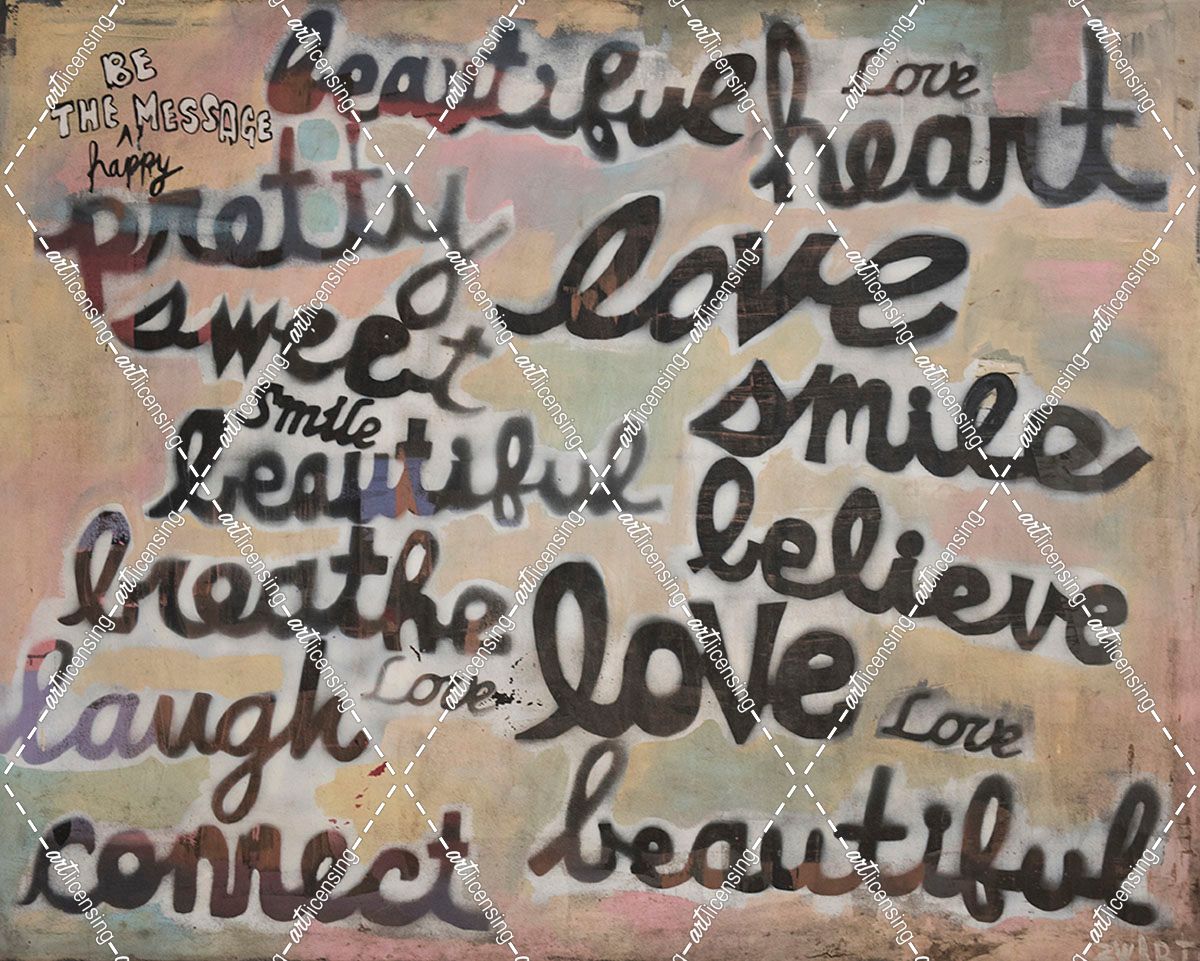 BE
THE MESSAGE
happy
beautiful
Love
heart
pretty
love
sweet
smile
smile
beautiful
believe
breathe
love
Love
laugh
Love
connect
beautiful
artlicensing